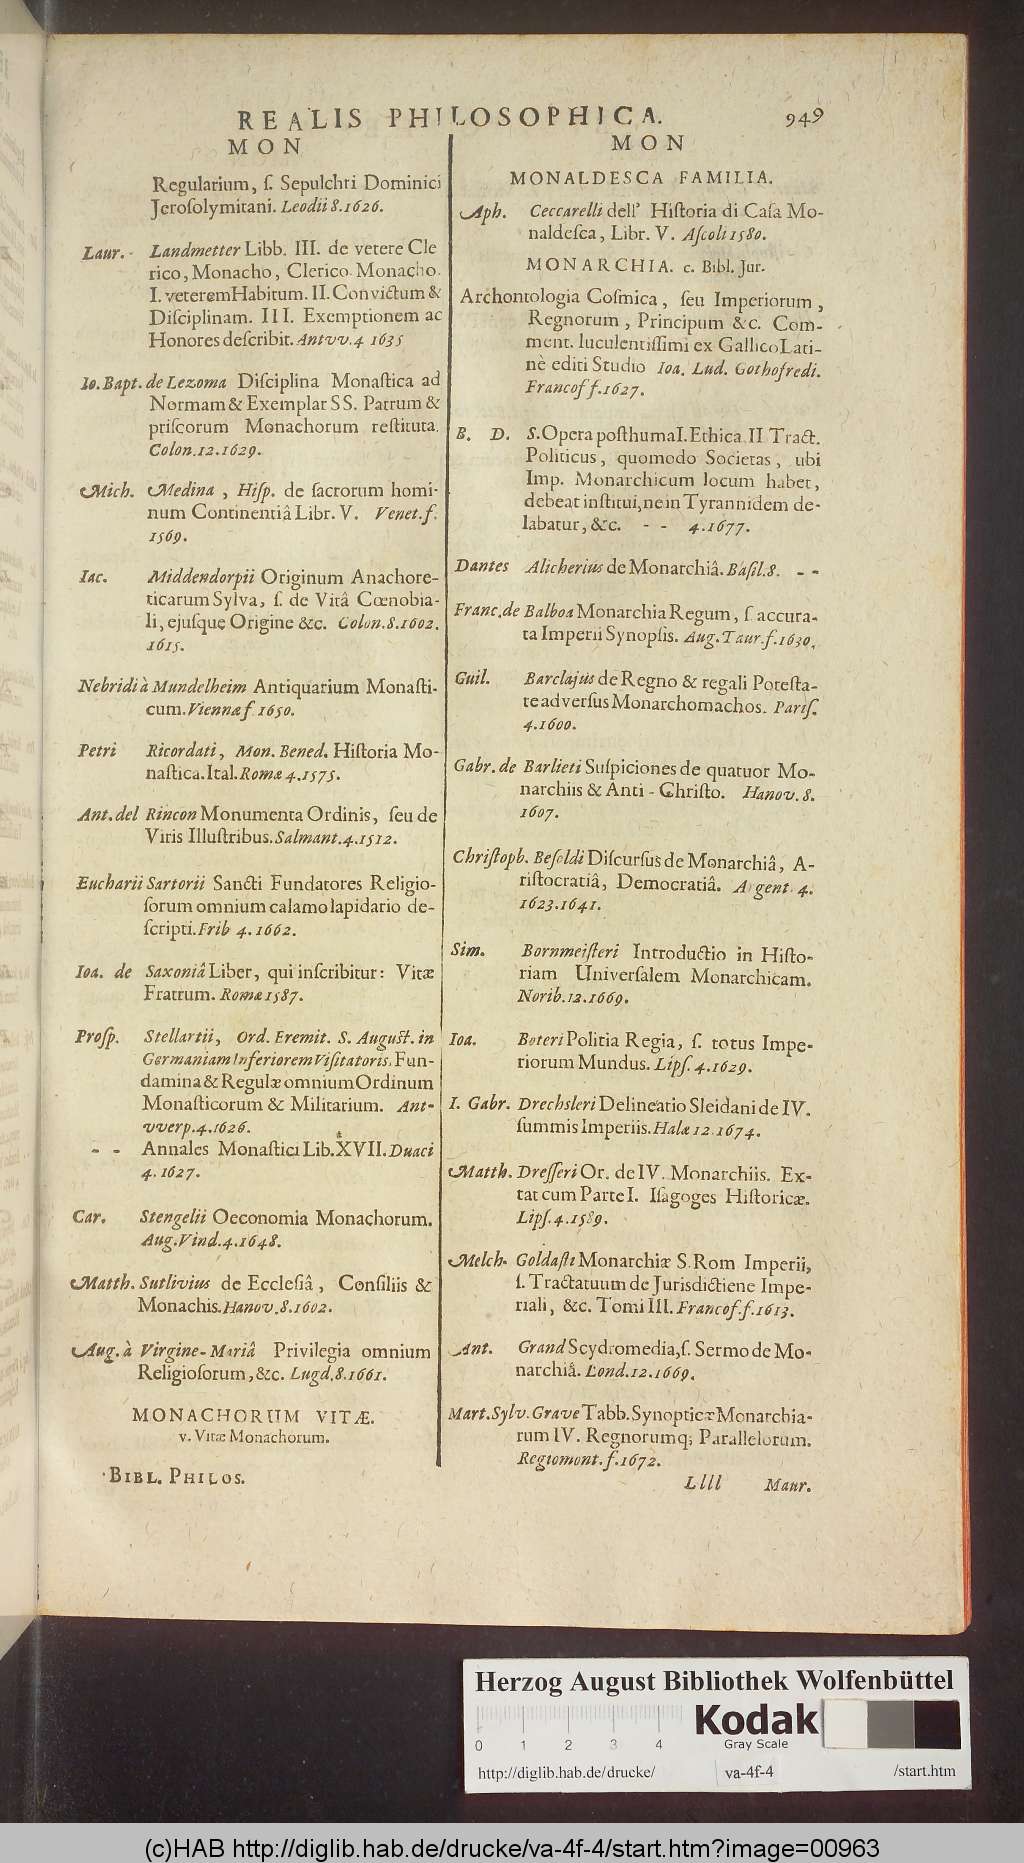 REALIS PHILOSOPHICA. 949
MON
Regularium, ſ. Sepulchri Dominici
Jeroſolymitani. Leodii 8. 1626.
Laur. Landmetter Libb. III. de vetere Cle
rico, Monacho, Clerico Monacho.
I. veterem Habitum. II. Convictum &
Diſciplinam. III. Exemptionem ac
Honores deſcribit. Antvv. 4 1635
Io. Bapt. de Lezoma Diſciplina Monaſtica ad
Normam & Exemplar SS. Patrum &
priſcorum Monachorum reſtituta.
Colon. 12. 1629.
Mich. Medina, Hiſp. de ſacrorum homi-
num Continentiâ Libr. V. Venet. f.
1569.
Iac. Middendorpii Originum Anachore-
ticarum Sylva, ſ. de Vitâ Cœnobia-
li, ejuſque Origine &c. Colon. 8. 1602.
1615.
Nebridi à Mundelheim Antiquarium Monaſti-
cum. Viennæ f. 1650.
Petri Ricordati, Mon. Bened. Hiſtoria Mo-
naſtica. Ital. Romæ 4. 1575.
Ant. del Rincon Monumenta Ordinis, ſeu de
Viris Illuſtribus. Salmant. 4. 1512.
Eucharii Sartorii Sancti Fundatores Religio-
ſorum omnium calamo lapidario de-
ſcripti. Frib 4. 1662.
Ioa. de Saxoniâ Liber, qui inſcribitur: Vitæ
Fratrum. Romæ 1587.
Proſp. Stellartii, Ord. Eremit. S. Auguſt. in
Germaniam Inferiorem Viſitatoris, Fun-
damina & Regulæ omnium Ordinum
Monaſticorum & Militarium. Ant-
vverp. 4. 1626.
- - Annales Monaſtici Lib. XVII. Duaci
4. 1627.
Car. Stengelii Oeconomia Monachorum.
Aug. Vind. 4. 1648.
Matth. Sutlivius de Eccleſiâ, Conſiliis &
Monachis. Hanov. 8. 1602.
Aug. à Virgine-Mariâ Privilegia omnium
Religioſorum, &c. Lugd. 8. 1661.
MONACHORUM VITÆ.
v. Vitæ Monachorum.
BIBL. PHILOS.
MON
MONALDESCA FAMILIA.
Aph. Ceccarelli dell' Hiſtoria di Caſa Mo-
naldeſca, Libr. V. Aſcoli 1580.
MONARCHIA. c. Bibl. Jur.
Archontologia Coſmica, ſeu Imperiorum,
Regnorum, Principum &c. Com-
ment. luculentiſſimi ex Gallico Lati-
nè editi Studio Ioa. Lud. Gothofredi.
Francof f. 1627.
B. D. S. Opera poſthuma I. Ethica II Tract.
Politicus, quomodo Societas, ubi
Imp. Monarchicum locum habet,
debeat inſtitui, ne in Tyrannidem de-
labatur, &c. - - 4. 1677.
Dantes Alicherius de Monarchiâ. Baſil. 8. - -
Franc. de Balboa Monarchia Regum, ſ accura-
ta Imperii Synopſis. Aug. Taur. f. 1630.
Guil. Barclajus de Regno & regali Poteſta-
te adverſus Monarchomachos. Pariſ.
4. 1600.
Gabr. de Barlieti Suſpiciones de quatuor Mo-
narchiis & Anti-Chriſto. Hanov. 8.
1607.
Chriſtoph. Beſoldi Diſcurſus de Monarchiâ, A-
riſtocratiâ, Democratiâ. Argent. 4.
1623. 1641.
Sim. Bornmeiſteri Introductio in Hiſto-
riam Univerſalem Monarchicam.
Norib. 12. 1669.
Ioa. Boteri Politia Regia, ſ. totus Impe-
riorum Mundus. Lipſ. 4. 1629.
I. Gabr. Drechsleri Delineatio Sleidani de IV.
ſummis Imperiis. Halæ 12. 1674.
Matth. Dreſſeri Or. de IV. Monarchiis. Ex-
tat cum Parte I. Iſagoges Hiſtoricæ.
Lipſ. 4. 1589.
Melch. Goldaſti Monarchiæ S. Rom Imperii,
ſ. Tractatuum de Jurisdictiene Impe-
riali, &c. Tomi III. Francof. f. 1613.
Ant. Grand Scydromedia, ſ. Sermo de Mo-
narchiâ. Lond. 12. 1669.
Mart. Sylv. Grave Tabb. Synopticæ Monarchia-
rum IV. Regnorumq; Parallelorum.
Regiomont. f. 1672.
Llll Maur.
Herzog August Bibliothek Wolfenbüttel
0 1 2 3 4
Kodak
Gray Scale
http://diglib.hab.de/drucke/ va-4f-4 /start.htm
(c)HAB http://diglib.hab.de/drucke/va-4f-4/start.htm?image=00963